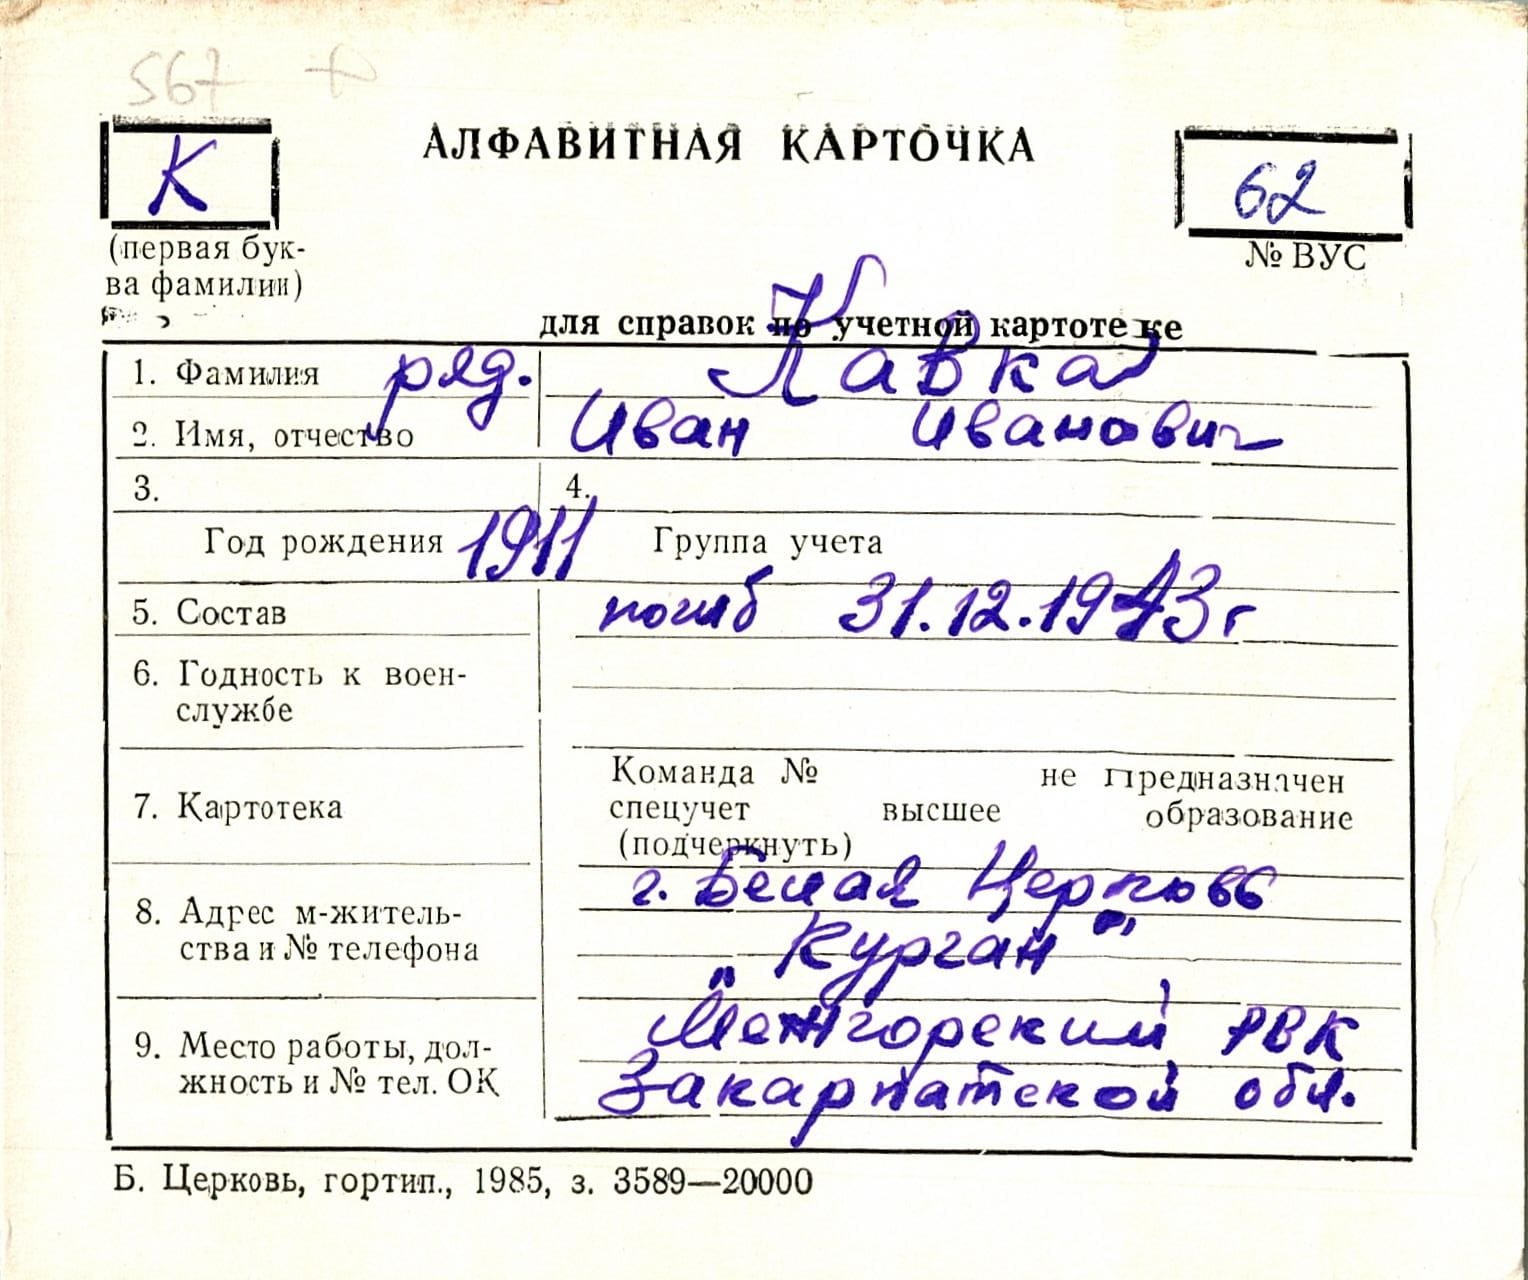 567
АЛФАВИТНАЯ КАРТОЧКА
К
62
(первая бук-
ва фамилии)
№ ВУС
для справок по учетной картотеке
1. Фамилия ряд. Кавка
2. Имя, отчество Иван Иванович
3. 4.
Год рождения 1911 Группа учета
5. Состав погиб 31.12.1943 г
6. Годность к воен-
службе
Команда № не предназначен
7. Картотека спецучет высшее образование
(подчеркнуть)
г. Белая Церковь
8. Адрес м-житель-
ства и № телефона
„Курган“
Межгорский РВК
9. Место работы, дол-
жность и № тел. ОК
Закарпатской обл.
Б. Церковь, гортип., 1985, з. 3589—20000